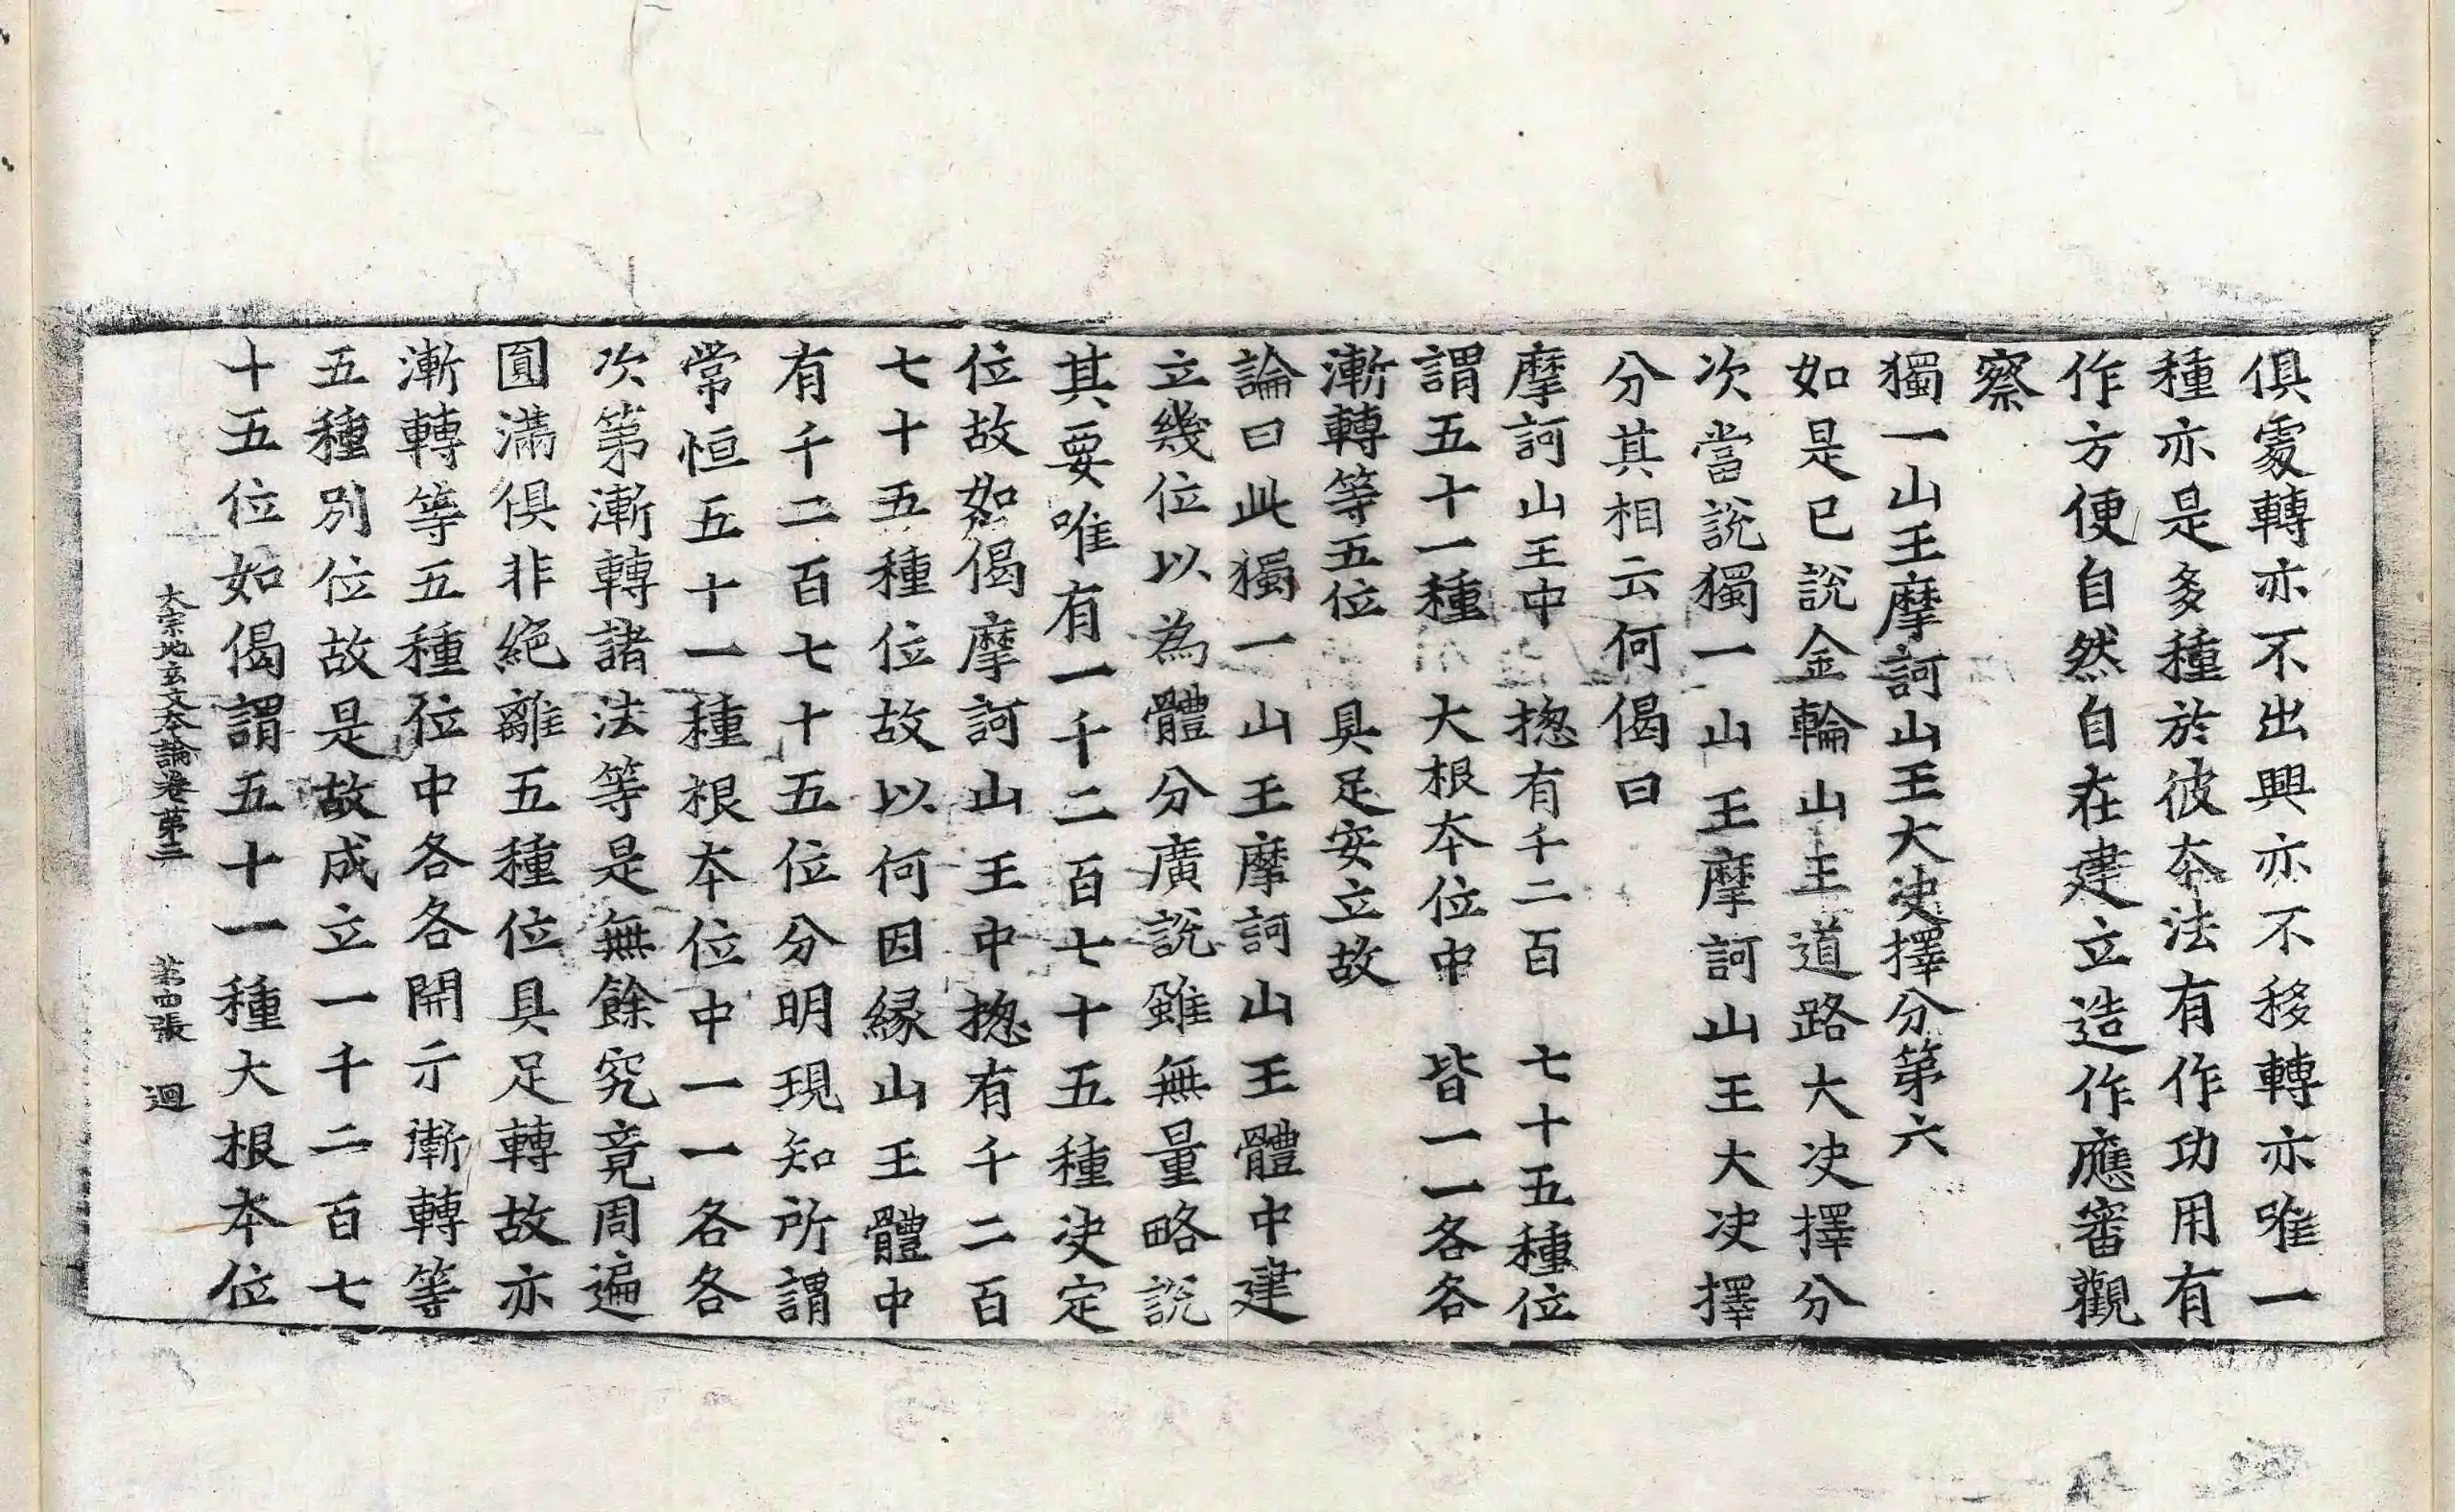 俱處轉亦不出興亦不移轉亦唯一
種亦是多種於彼本法有作功用有
作方便自然自在建立造作應審觀
察
獨一山王摩訶山王大决擇分第六
如是已說金輪山王道路大决擇分
次當說獨一山王摩訶山王大决擇
分其相云何偈曰
摩訶山王中　揔有千二百　七十五種位
謂五十一種　大根本位中　皆一一各各
漸轉等五位　具足安立故
論曰此獨一山王摩訶山王體中建
立幾位以為體分廣說雖無量略說
其要唯有一千二百七十五種决定
位故如偈摩訶山王中揔有千二百
七十五種位故以何因緣山王體中
有千二百七十五位分明現知所謂
常恒五十一種根本位中一一各各
次第漸轉諸法等是無餘究竟周遍
圓滿俱非絶離五種位具足轉故亦
漸轉等五種位中各各開示漸轉等
五種別位故是故成立一千二百七
十五位如偈謂五十一種大根本位
大宗地玄文本論卷第三　第四張　迴